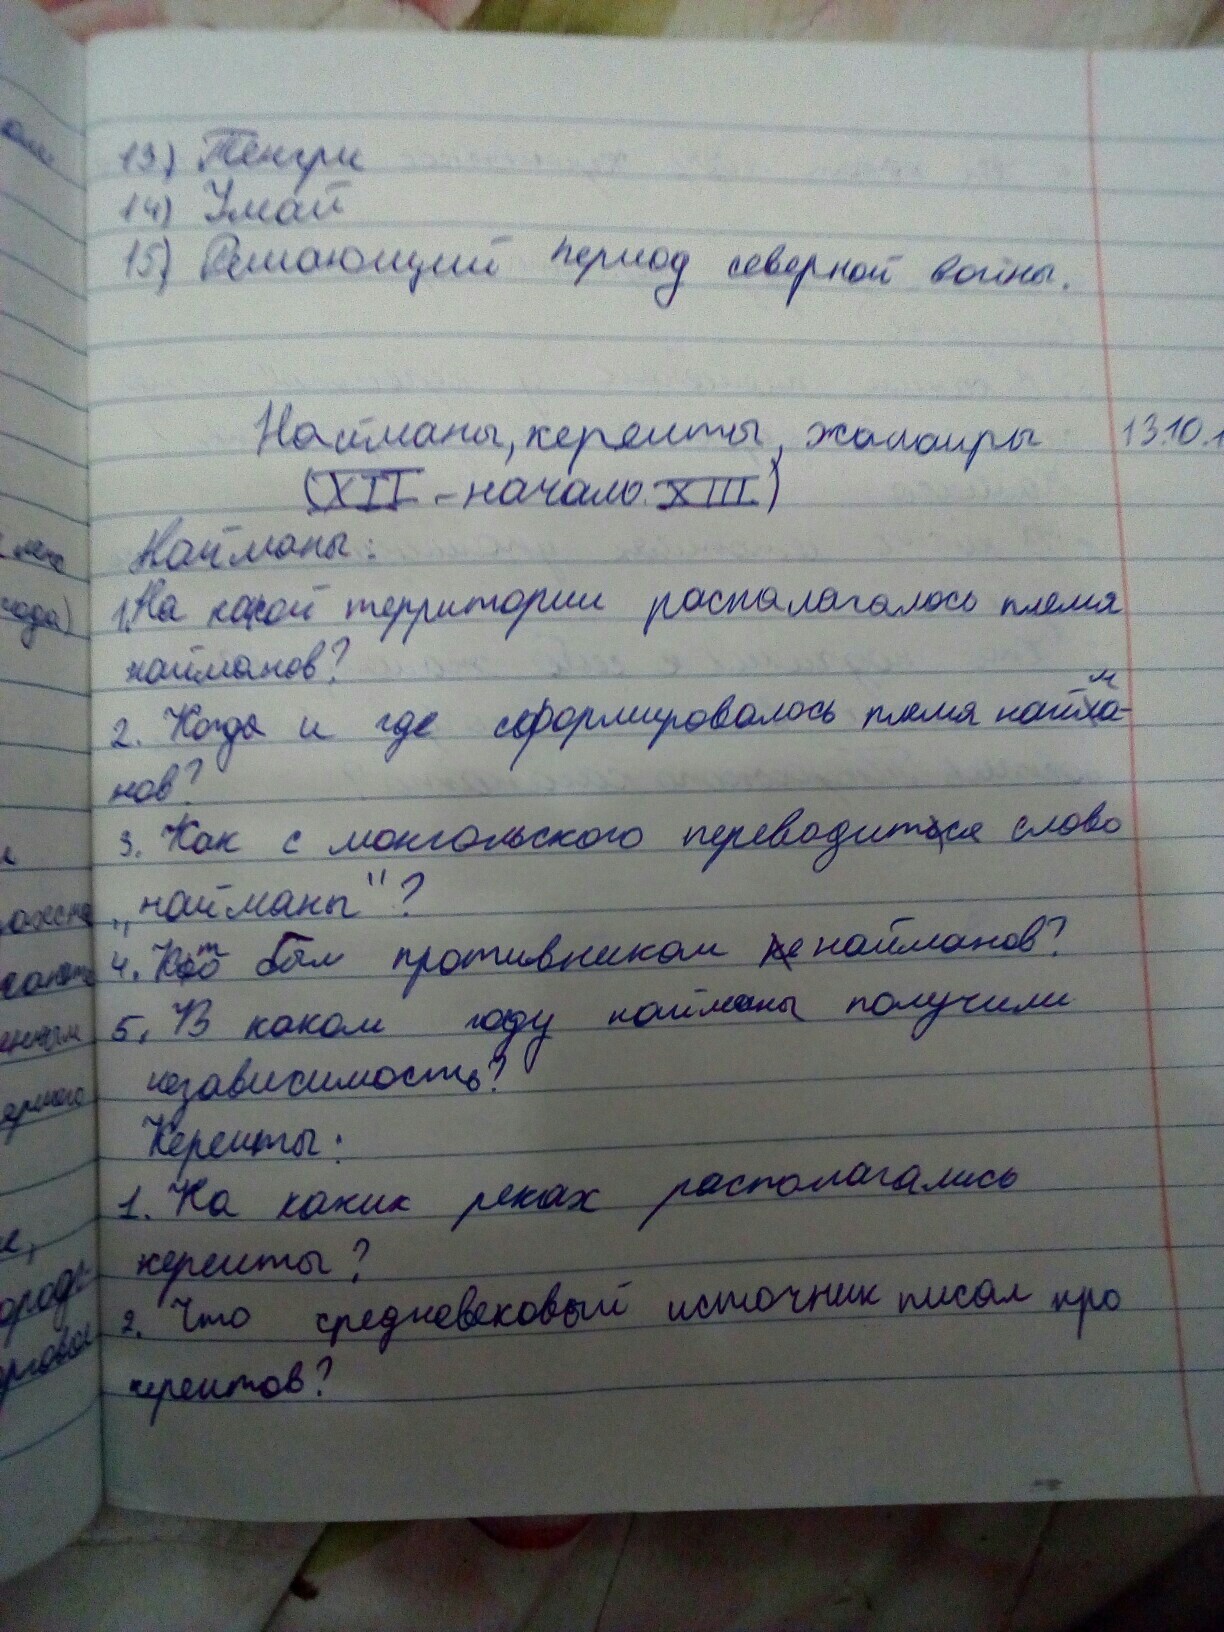 13) Тенгри
14) Умай
15) Решающий период северной войны.
Найманы, кереиты, жалаиры 13.10.1
(XII - начало XIII)
Найманы:
1. На какой территории распалагалось племя
найманов?
2. Когда и где сформировалось племя найма-
нов?
3. Как с монгольского переводится слово
„найманы"?
4. Кто был противником найманов?
5. В каком году найманы получили
независимость?
Кереиты:
1. На каких реках располагались
кереиты?
2. Что средневековый источник писал про
кереитов?